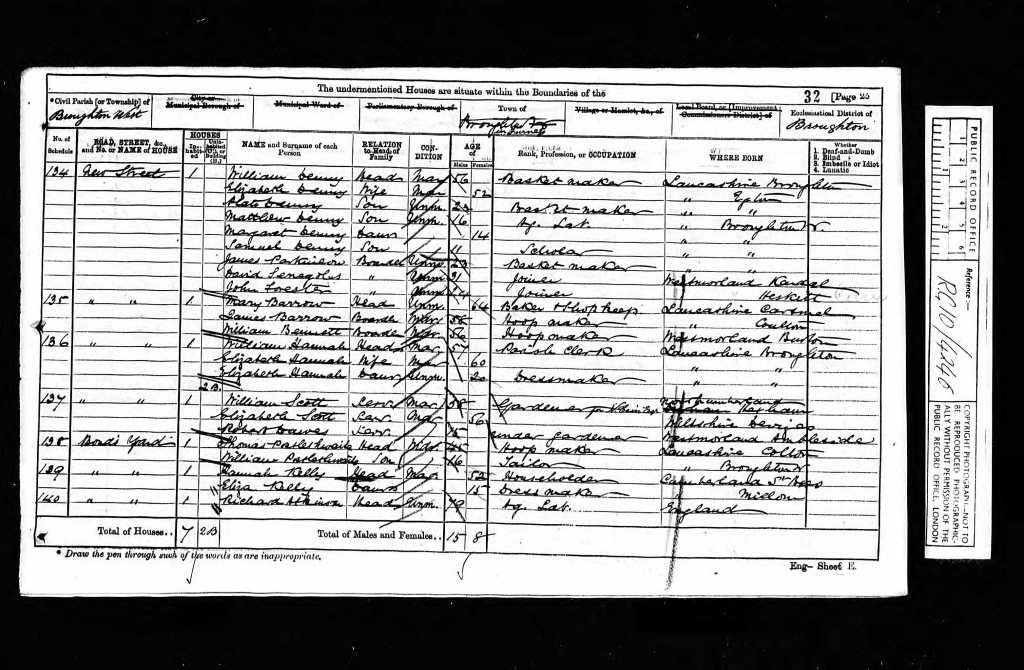 The undermentioned Houses are situate within the Boundaries of the
32 [Page 25
*Civil Parish [or Township] of
City or Municipal Borough of
Municipal Ward of
Parliamentary Borough of
Town of
Village or Hamlet, &c., of
Local Board, or [Improvement Commissioners District] of
Ecclesiastical District of
Broughton West
Broughton
No. of Schedule
ROAD, STREET, &c., and No. or NAME of HOUSE
HOUSES
Inhabited
Uninhabited (U.), or Building (B.)
NAME and Surname of each Person
RELATION to Head of Family
CONDITION
AGE of
Males
Females
Rank, Profession, or OCCUPATION
WHERE BORN
Whether
1. Deaf-and-Dumb
2. Blind
3. Imbecile or Idiot
4. Lunatic
134 New Street 1 William Denny Head Mar 56 Basket maker Lancashire Broughton
Elizabeth Denny Wife Mar 52 " Egton
Denny Son Unm 22 Basket maker " "
Matthew Denny Son Unm 16 Ag. Lab. " Broughton
Margaret Denny Daur 14 " "
Samuel Denny Son 11 Scholar " "
James Parkinson Boarder Unm 23 Basket maker " "
David Boarder " Unm 21 Joiner Westmorland Kendal
John Forester " Unm Joiner " Heskett
135 " " 1 Mary Barrow Head Unm 64 Baker & Shop keep Lancashire Cartmel
James Barrow Boarder Mar 58 Hoop maker " Coulton
William Bennett Boarder Mar 56 Hoop maker Westmorland Burton
136 " " 1 William Hannah Head Mar 57 Parish Clerk Lancashire Broughton
Elizabeth Hannah Wife Mar 60 " "
Elizabeth Hannah Daur Unm 20 Dressmaker " "
2B
137 " " 1 William Scott Serv. Mar. 58 Gardener Northumberland Hexham
Elizabeth Scott Serv. 56 Wiltshire
Robert Dawes Serv. under gardener Westmorland Ambleside
138 Nords Yard 1 Thomas Postlethwaite Head 45 Hoop maker Lancashire Colton
William Postlethwaite Son 16 Tailor " Broughton
139 " " 1 Hannah Kelly Head Mar 52 Householder Cumberland
Eliza Kelly Daur 15 Dress maker " Millom
140 " " 1 Richard Atkinson Head Unm. 79 Ag. Lab. England
Total of Houses.. 7 2B Total of Males and Females.. 15 8
* Draw the pen through such of the words as are inappropriate.
Eng—Sheet E.
PUBLIC RECORD OFFICE
1 2 3 4 5 6
1 2
Reference:-
RG10/4246
COPYRIGHT PHOTOGRAPH—NOT TO BE REPRODUCED PHOTOGRAPHICALLY WITHOUT PERMISSION OF THE PUBLIC RECORD OFFICE, LONDON